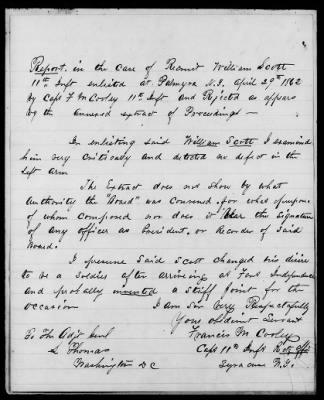 Report in the case of Recruit William Scott
11th Inft enlisted at Palmyra N.Y. April 29th 1862
by Capt F M Cooley 11th Inft and Rejected as appears
by the annexed extract of Proceedings —
In enlisting said William Scott I examined
him very critically and detected no defect in the
left arm
The Extract does not show by what
Authority the "Board" was convened, for what purpose
of whom composed nor does it bear the signature
of any officer as President, or Recorder of said
Board.
I presume said Scott changed his desire
to be a Soldier after arriving at Fort Independence
and probably invented a stiff joint for the
occasion I am Sir Very Respectfully
Your obedient Servant
Francis M Cooley
Capt 11th Inft
Syracuse N.Y.
To The Adjt Genl
L Thomas
Washington DC